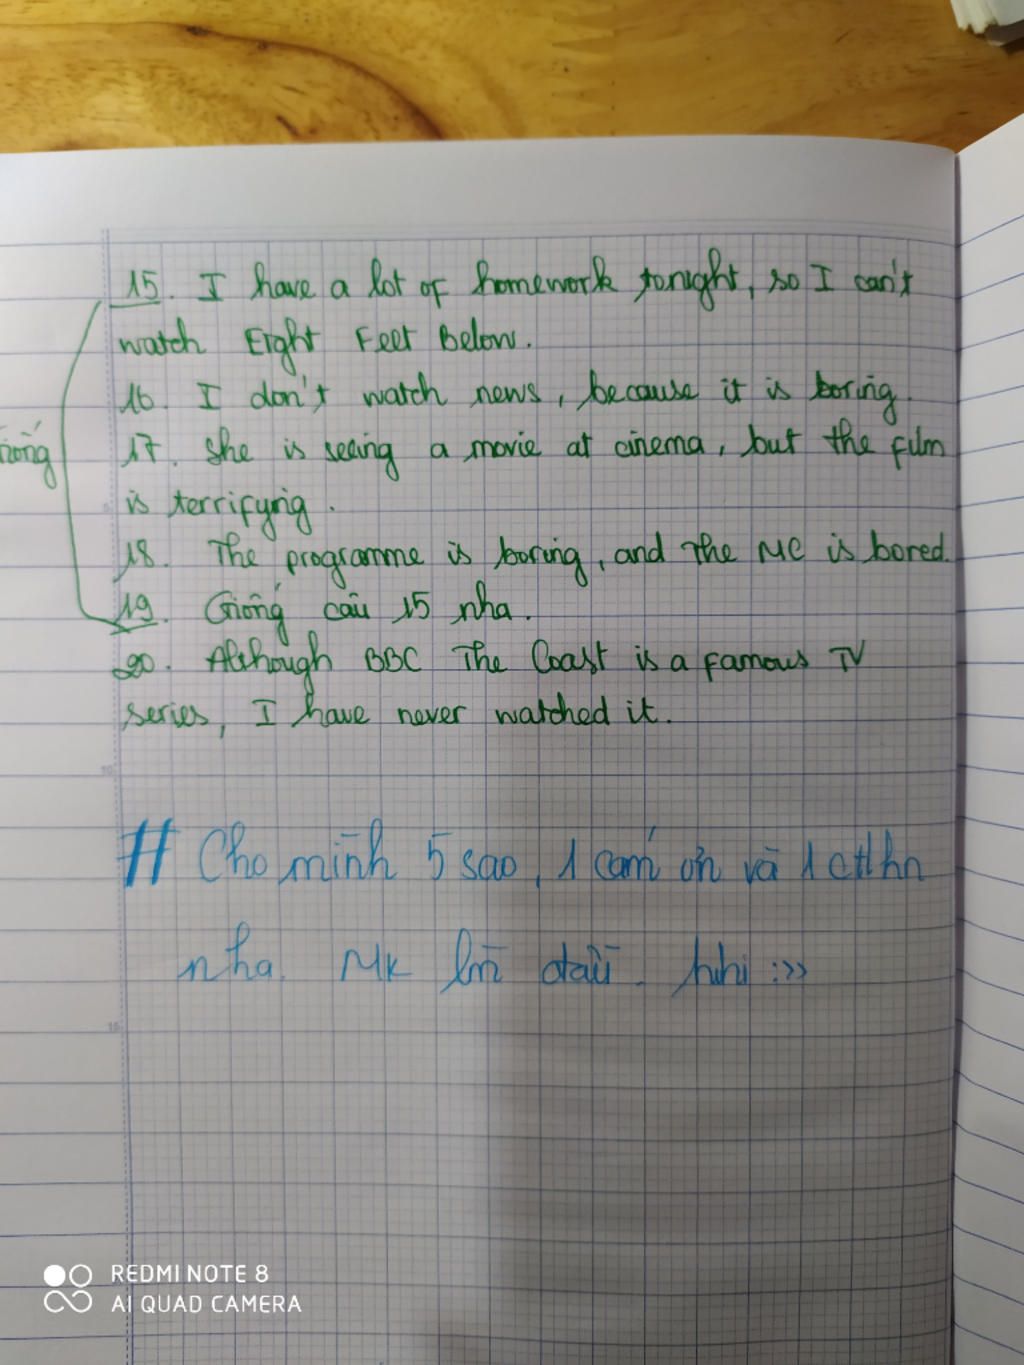 15. I have a lot of homework tonight, so I can't
watch Eight Feet Below.
16. I don't watch news, because it is boring.
17. She is seeing a movie at cinema, but the film
is terrifying.
18. The programme is boring, and the MC is bored.
Giống
19. Giống câu 15 nha.
20. Although BBC The Coast is a famous TV
series, I have never watched it.
# Cho mình 5 sao, 1 cám ơn và 1 ctlhn
nha. Mk lm đầu. hihi :>>
REDMI NOTE 8
AI QUAD CAMERA